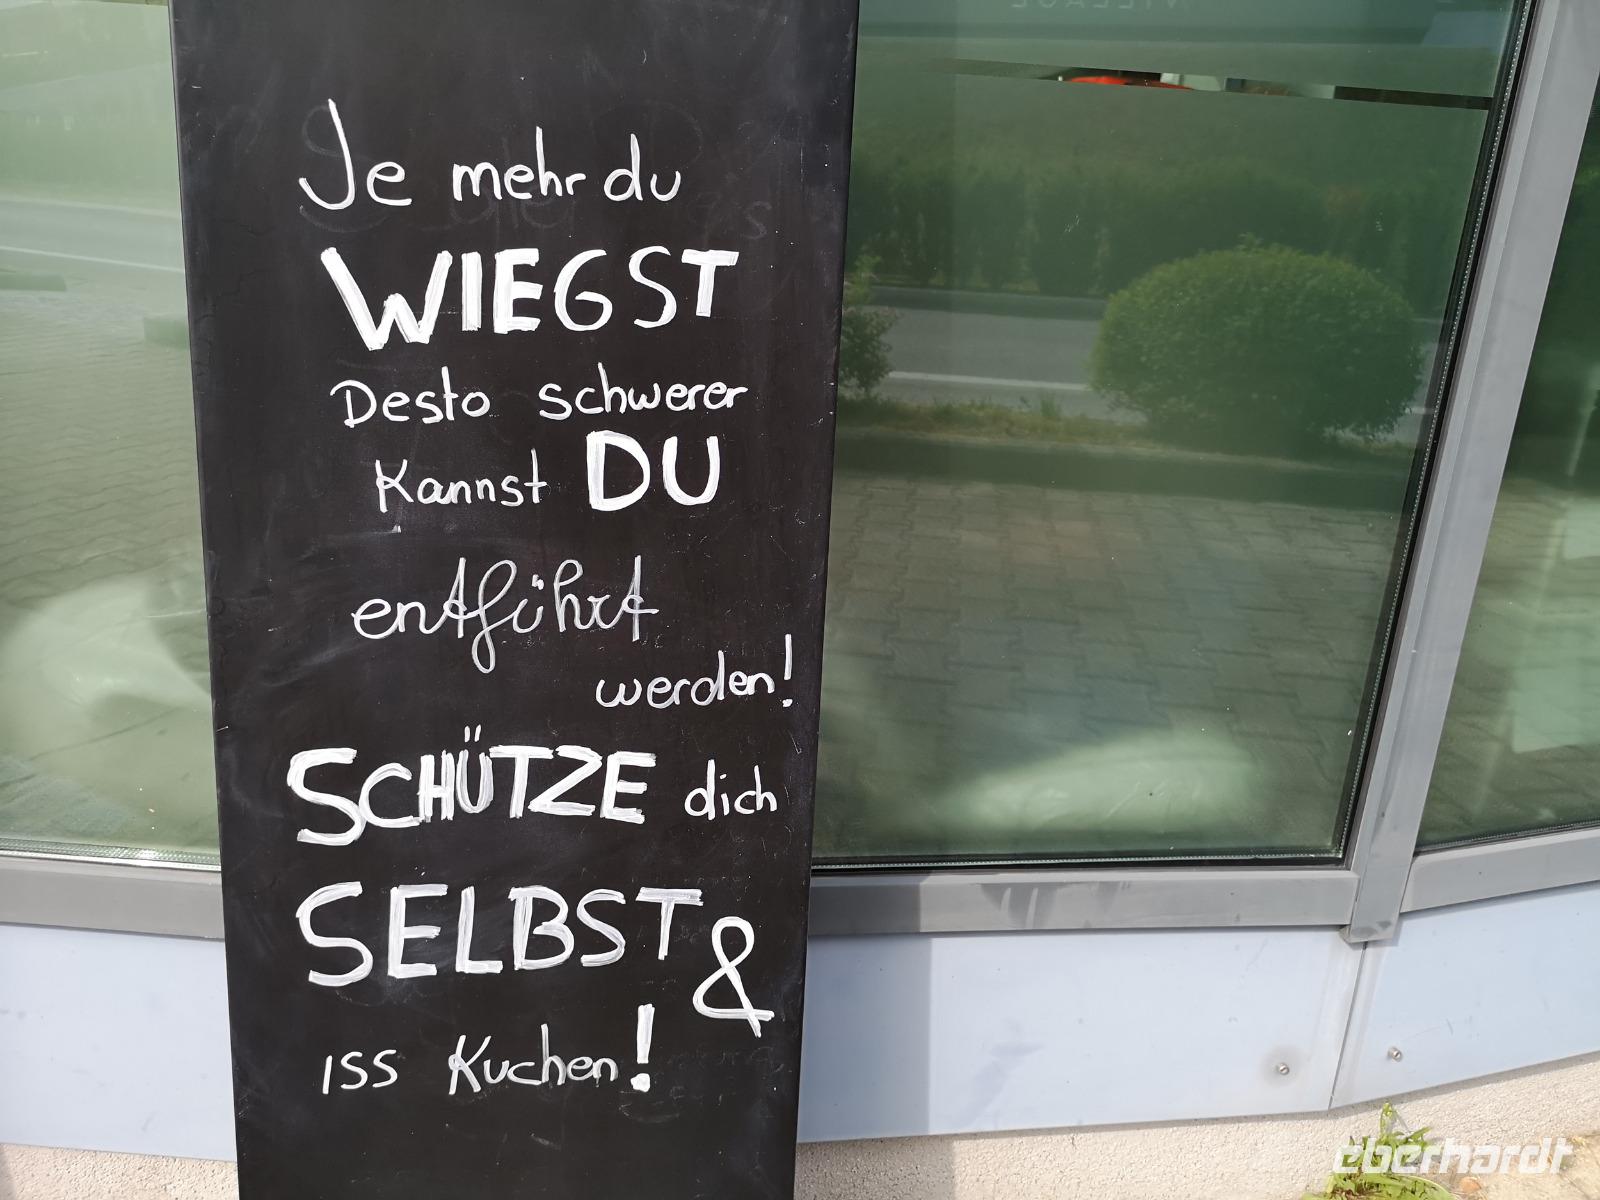 Je mehr du
WIEGST
Desto schwerer
Kannst DU
entführt
werden!
SCHÜTZE dich
SELBST &
iss Kuchen!
eberhardt